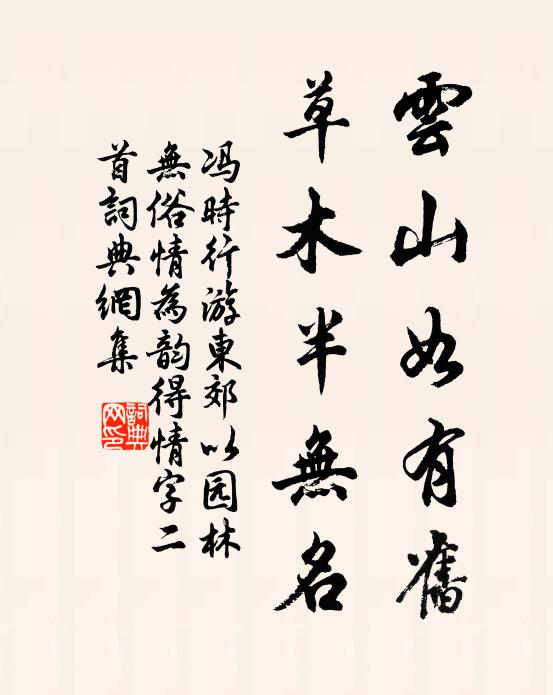 雲山如有舊
草木半無名
冯時行游東郊以园林
無俗情為韵得情字二
首詞典網集
詞典网印